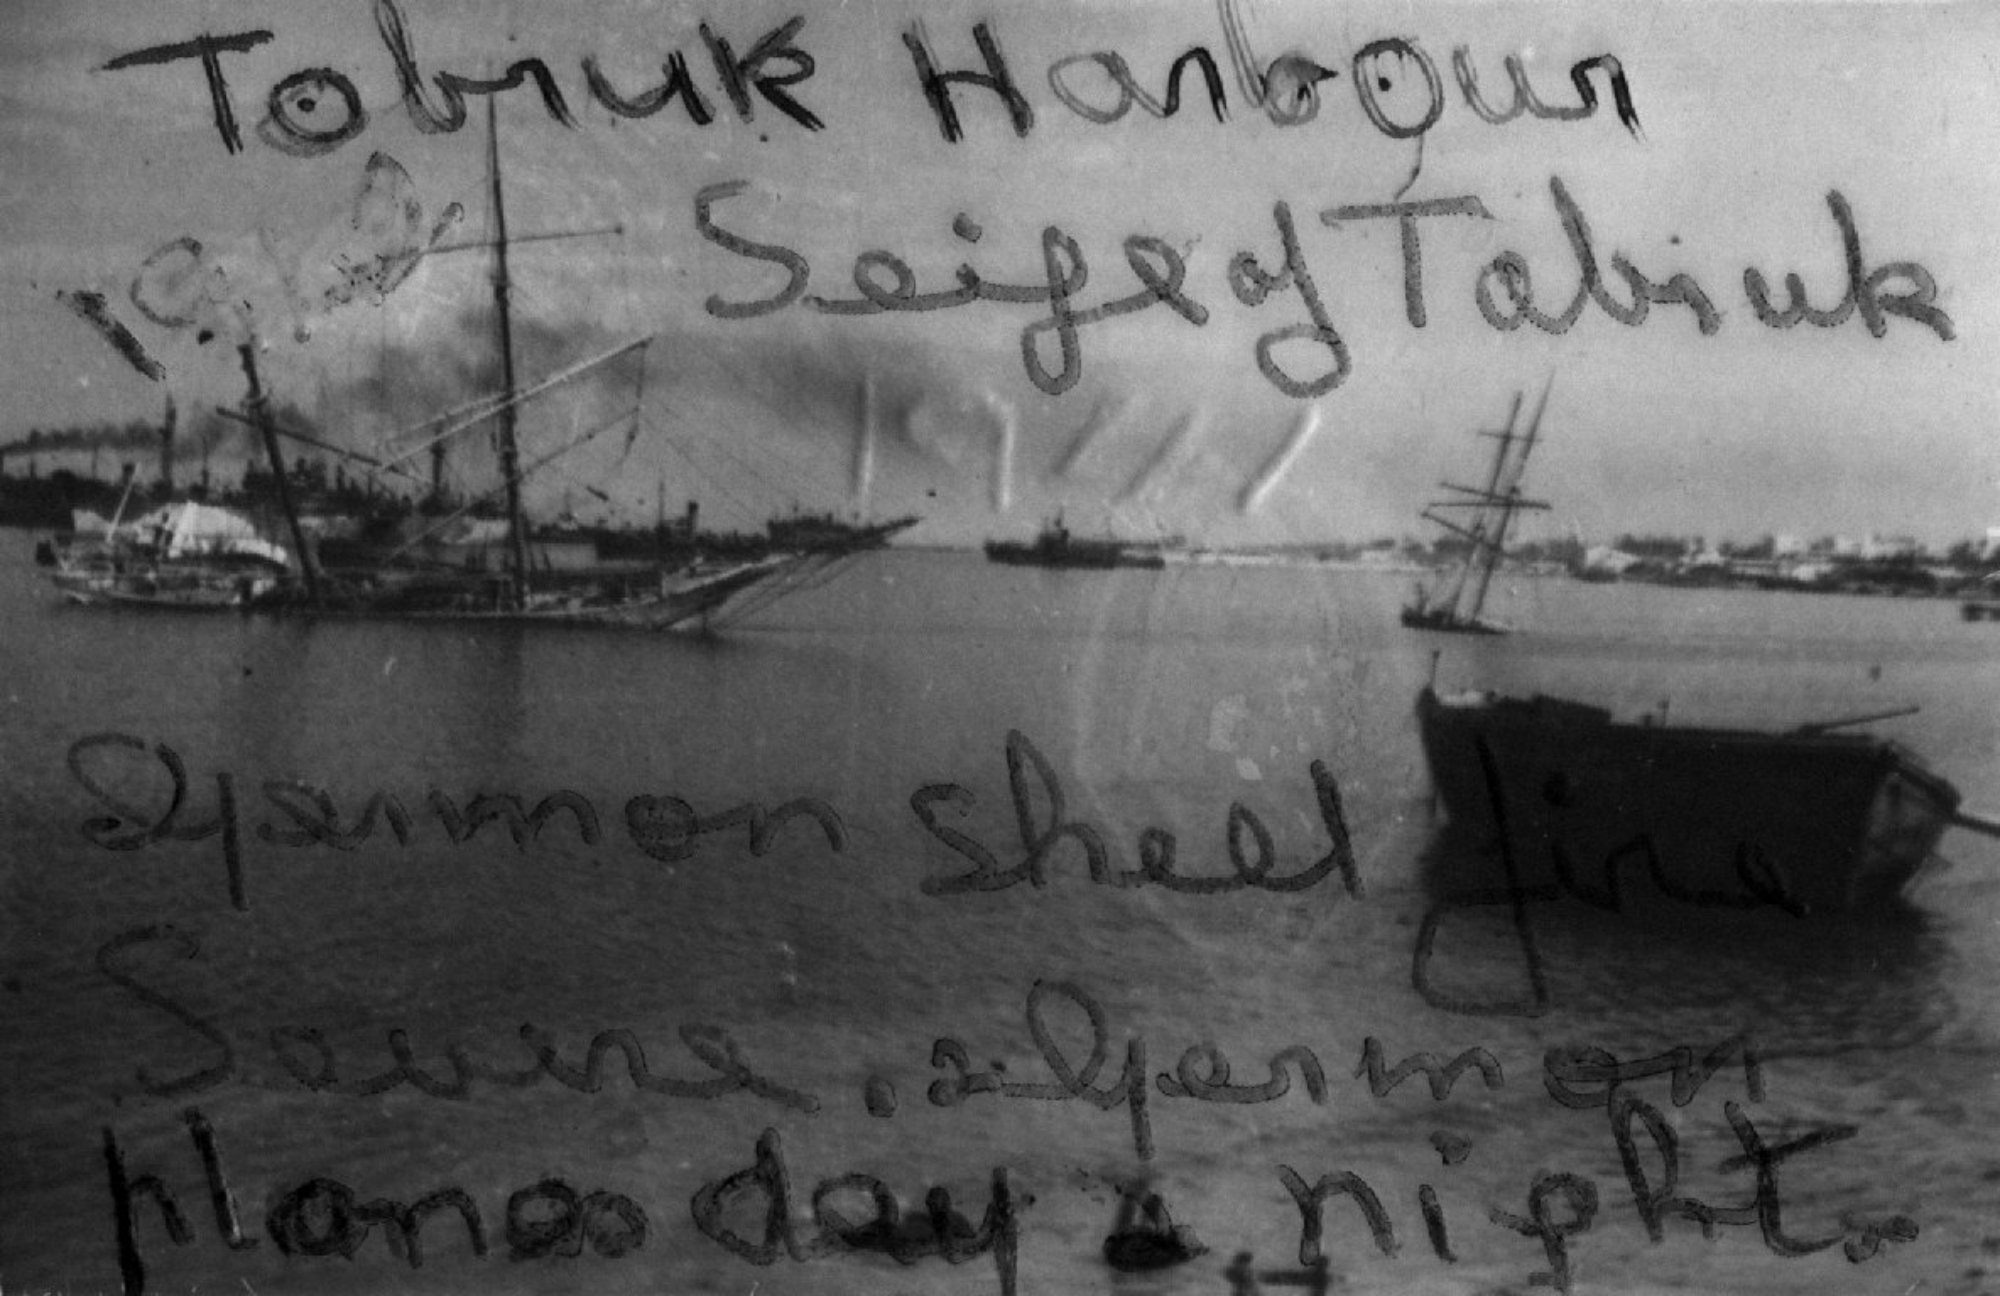 Tobruk Harbour
Seige of Tobruk
German shell fire
Sevire. & German
planes day & night.